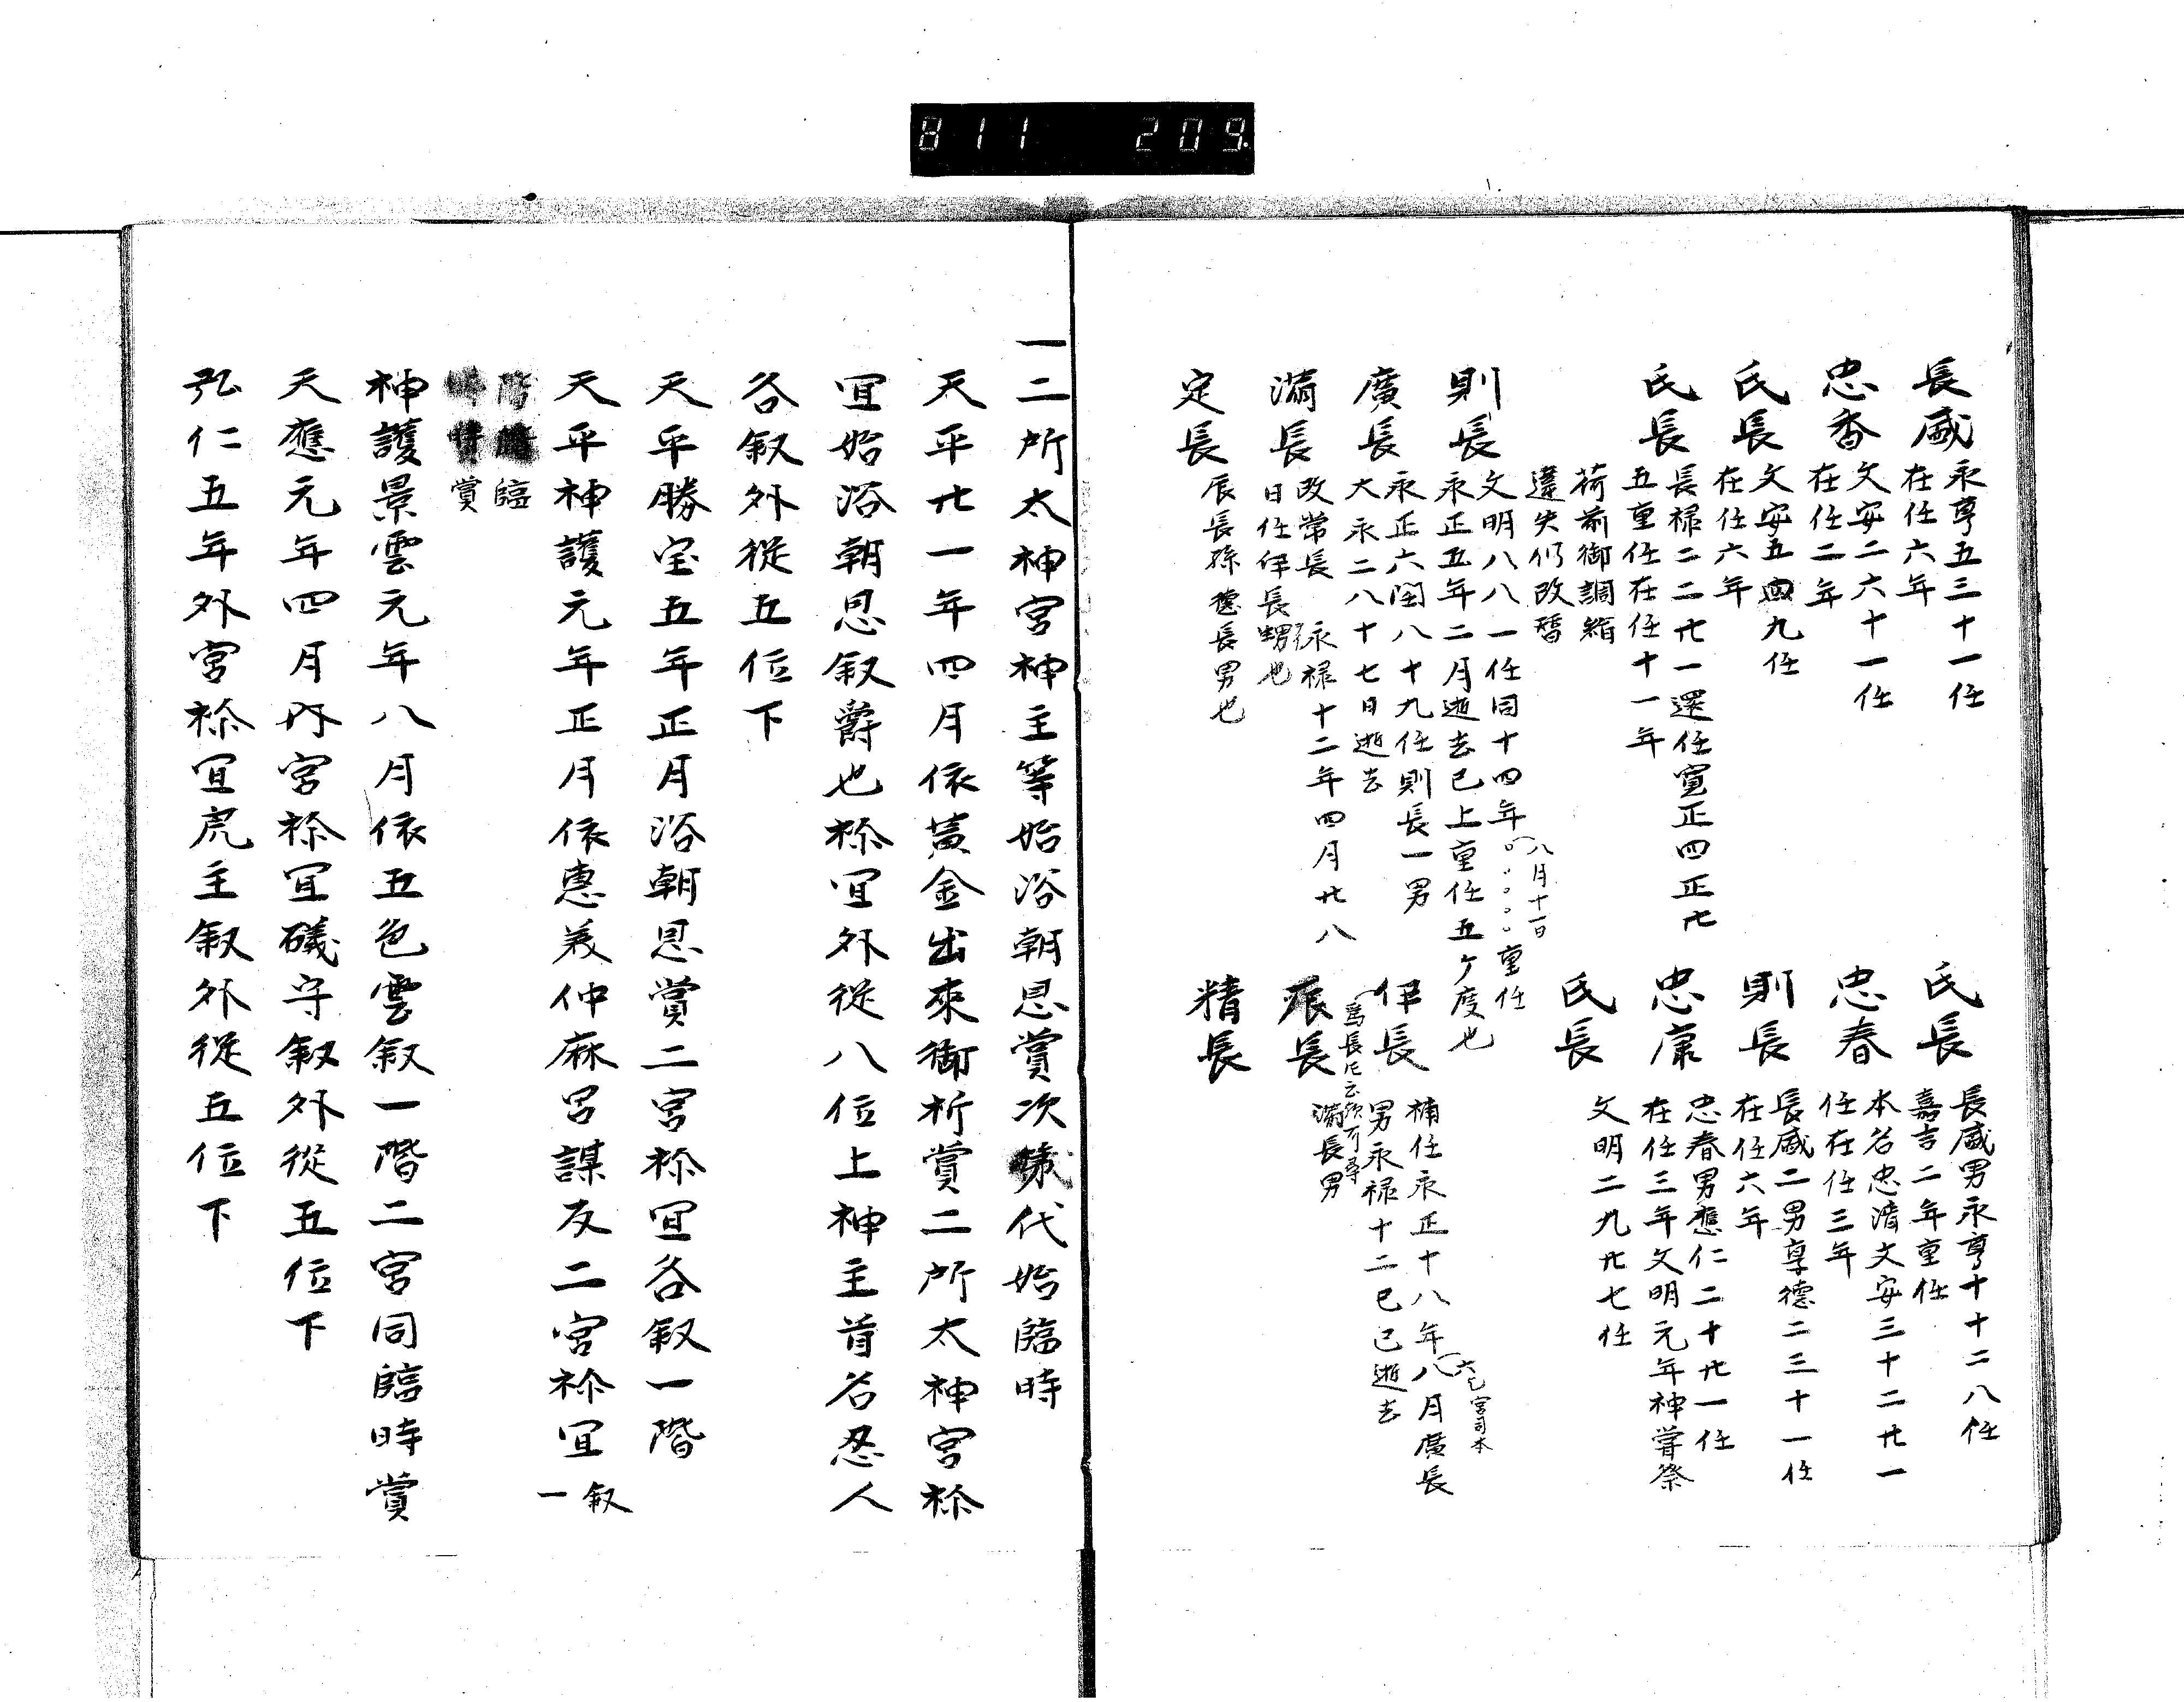 811 209
長盛 永享五三十一任
在任六年
氏長 長盛男永享十十二八任
嘉吉二年重任
忠香 文安二六十一任
在任二年
忠春 本名忠清文安三十二廿一
任在任三年
氏長 文安五四九任
在任六年
則長 長盛二男享徳二三十一任
在任六年
氏長 長禄二二廿一還任寛正四正廿
五重任在任十一年
荷前御調絹
違失仍改替
忠康 忠春男應仁二十廿一任
在任三年文明元年神嘗祭
氏長 文明二九廿七任
則長 文明八八一任同十四年八月十一日重任
永正五年二月逝去已上重任五ケ度也
廣長 永正六閏八十九任則長一男
大永二八十七日逝去
伊長 補任永正十八年八月廣長
六乜宮司本
男永禄十二己巳逝去
満長 改常長 永禄十二年四月廿八
日任伊長甥也
辰長 満長男
定長 辰長孫德長男也
精長
一二所太神宮神主等始浴朝恩賞次第代始臨時
天平廿一年四月依黄金出來御祈賞二所太神宮祢
宜始浴朝恩叙爵也祢宜外從八位上神主首名忍人
各叙外從五位下
天平勝宝五年正月浴朝恩賞二宮祢宜各叙一階
天平神護元年正月依惠美仲麻呂謀反二宮祢宜 叙一
階臨
時賞
神護景雲元年八月依五色雲叙一階二宮同臨時賞
天應元年四月内宮祢宜礒守叙外從五位下
弘仁五年外宮祢宜虎主叙外從五位下